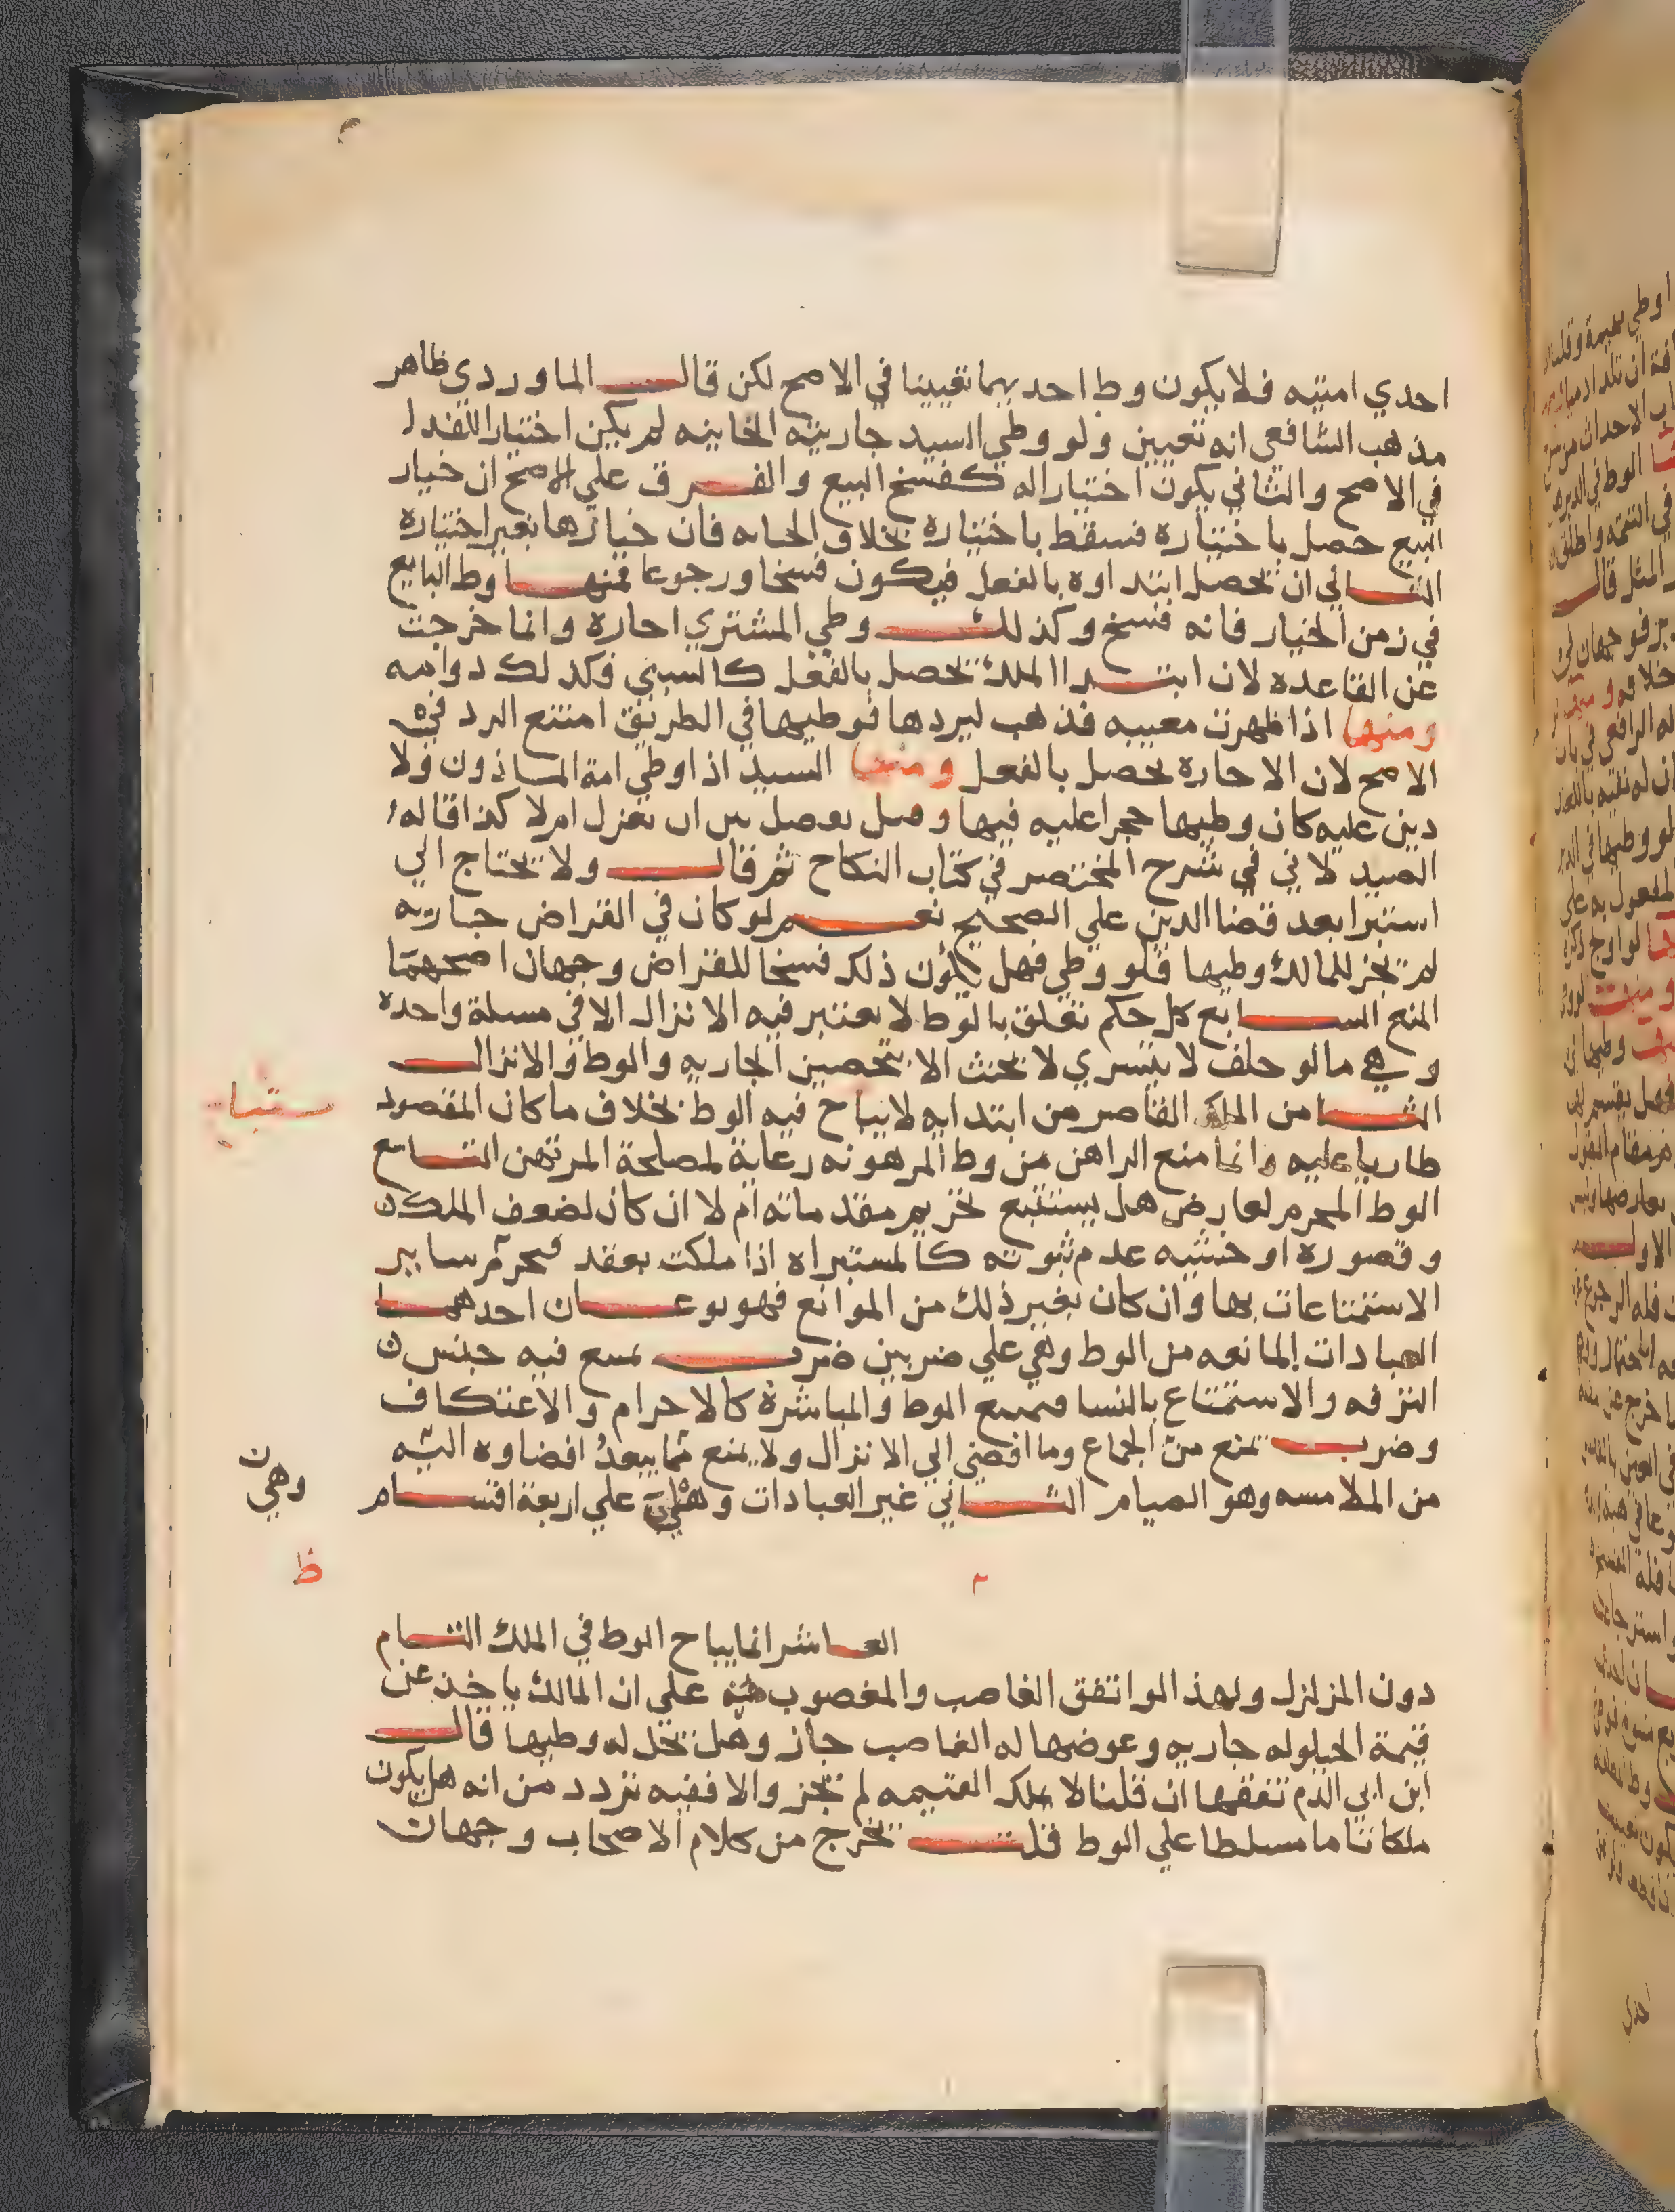 احدي امتيه فلا يكون وط احديهما تعيينا في الاصح لكن قال الماوردي ظاهر
مذهب الشافعي انه تعيين ولو وطي السيد جاريته الخاينه لم يكن اختيارا للفدا
في الاصح والثاني يكون اختيارا له كفسخ البيع والفرق علي الاصح ان خيار
البيع حصل باختياره فسقط باختياره بخلاف الجنايه فان خيارها بغير اختياره
الثاني ان يحصل ابتداوه بالفعل فيكون فسخا ورجوعا فمنها وط البايع
في زمن الخيار فانه فسخ وكذلك وطي المشتري اجازه وانما خرجت
عن القاعده لان ابتدا الملك يحصل بالفعل كالسبي فكذلك دوامه
ومنها اذا ظهرت معيبه فذهب ليردها فوطيها في الطريق امتنع الرد في
الاصح لان الاجازه تحصل بالفعل ومنها السيد اذا وطي امة الماذون ولا
دين عليه كان وطيها حجرا عليه فيها وقيل يفصل بين ان يعزل ام لا كذا قاله
الصيدلاني في شرح المختصر في كتاب النكاح ثم قال ولا تحتاج الي
استبرا بعد قضا الدين علي الصحيح نعم لو كان في القراض جاريه
لم يجز للمالك وطيها فلو وطي فهل يكون ذلك فسخا للقراض وجهان اصحهما
المنع السابع كل حكم تعلق بالوط لا يعتبر فيه الانزال الا في مسلة واحده
وهي ما لو حلف لا يتسري لا يحنث الا بتحصين الجاريه والوط والانزال
الثامن الملك القاصر من ابتدايه لا يباح فيه الوط بخلاف ما كان المقصود
طاريا عليه وانما منع الراهن من وط المرهونه رعاية لمصلحة المرتهن التاسع
الوط المحرم لعارض هل يستتبع تحريم مقدماته ام لا ان كان لضعف الملك
وقصوره او خشيه عدم ثبوته كالمستبراه اذا ملكت بعقد فتحرم ساير
الاستمتاعات بها وان كان بغير ذلك من الموانع فهو نوعان احدهما
العبادات المانعه من الوط وهي علي ضربين ضرب يمنع فيه جنس
الترفه والاستمتاع بالنسا فيمنع الوط والمباشرة كالاحرام والاعتكاف
وضرب يمنع من الجماع وما افضي الي الانزال ولا يمنع مما يبعد افضاوه اليه
من الملامسه وهو الصيام الثاني غير العبادات وهي علي اربعة اقسام
وهي
ظ
العاشر انما يباح الوط في الملك التام
دون المزلزل ولهذا لو اتفق الغاصب والمغصوب منه علي ان المالك ياخذ عن
قيمة الحيلوله جاريه وعوضها له الغاصب جاز وهل يحل له وطيها قال
ابن ابي الدم تفقها ان قلنا لا يملك القيمه لم يجز والا ففيه تردد من انه هل يكون
ملكا تاما مسلطا علي الوط قلت يخرج من كلام الاصحاب وجهان